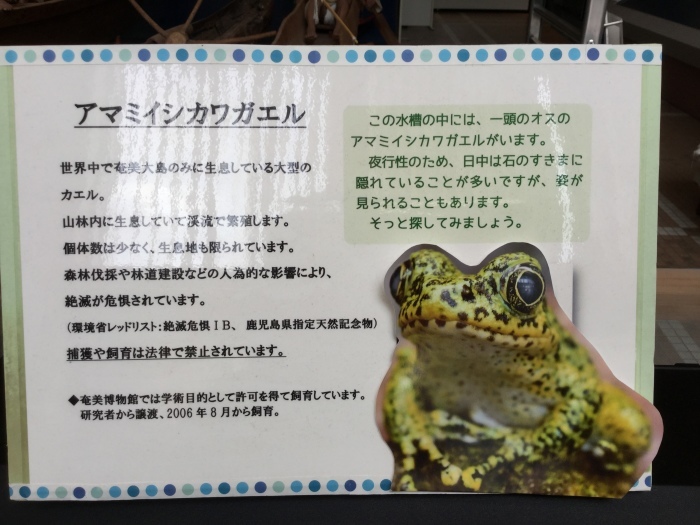 アマミイシカワガエル
世界中で奄美大島のみに生息している大型の
カエル。
山林内に生息していて渓流で繁殖します。
個体数は少なく、生息地も限られています。
森林伐採や林道建設などの人為的な影響により、
絶滅が危惧されています。
(環境省レッドリスト:絶滅危惧ⅠB、 鹿児島県指定天然記念物)
捕獲や飼育は法律で禁止されています。
◆奄美博物館では学術目的として許可を得て飼育しています。
研究者から譲渡、2006年8月から飼育。
この水槽の中には、一頭のオスの
アマミイシカワガエルがいます。
夜行性のため、日中は石のすきまに
隠れていることが多いですが、姿が
見られることもあります。
そっと探してみましょう。